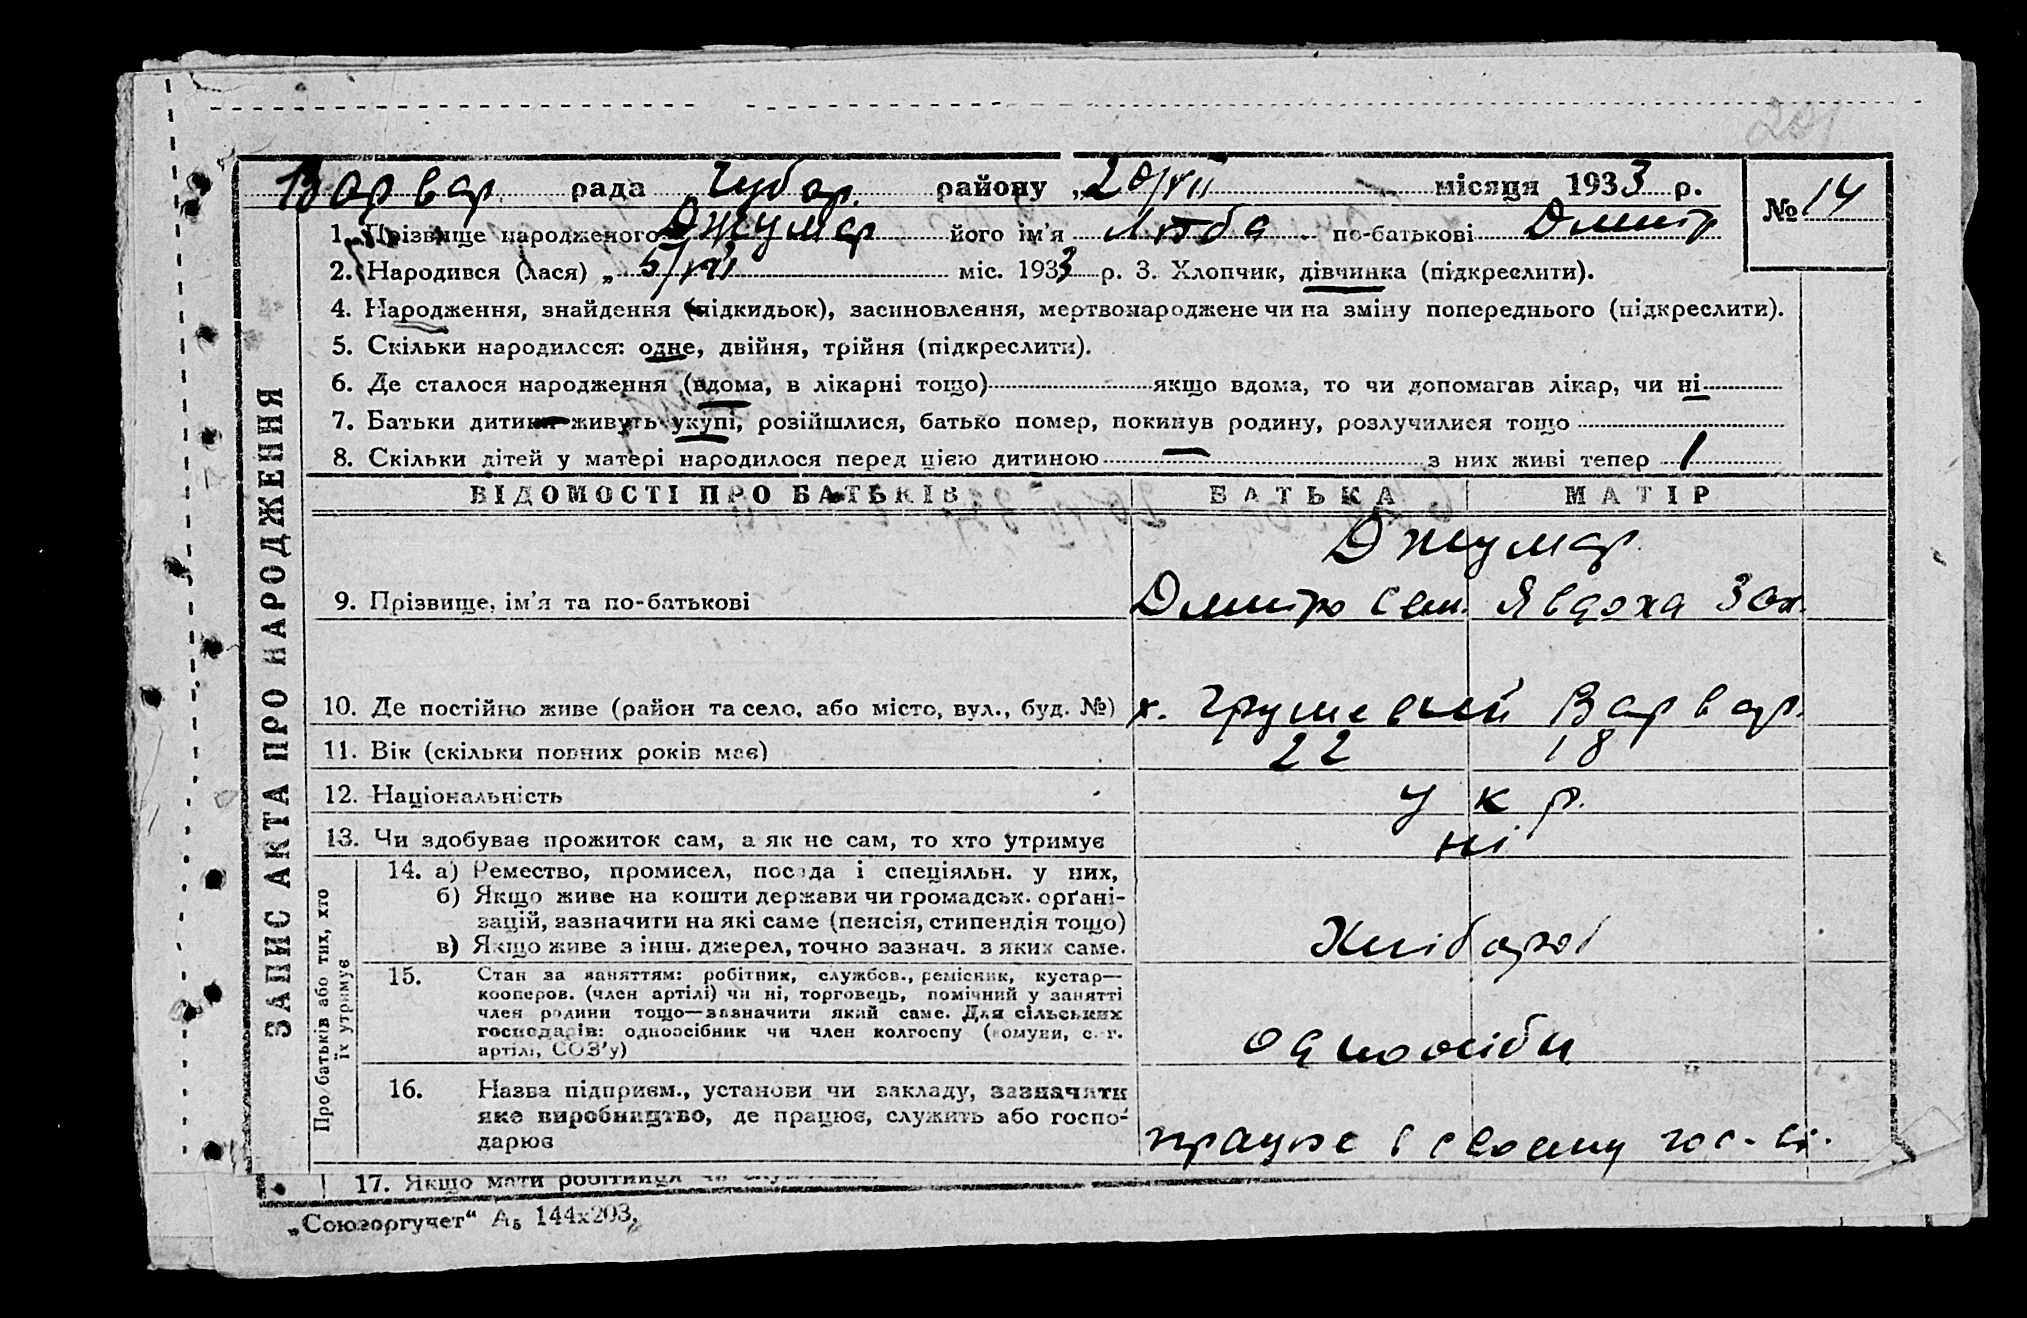 Варвар. рада Чубар. району „20/VII місяця 1933 р.
№ 14
1. Прізвище народженого Джумар його ім'я Люба по-батькові Дмитр
2. Народився (лася) „ 5/VII міс. 1933 р. 3. Хлопчик, дівчинка (підкреслити).
4. Народження, знайдення (підкидьок), засиновлення, мертвонароджене чи на зміну попереднього (підкреслити).
5. Скільки народилося: одне, двійня, трійня (підкреслити).
6. Де сталося народження (вдома, в лікарні тощо) якщо вдома, то чи допомагав лікар, чи ні
7. Батьки дитини живуть укупі, розійшлися, батько помер, покинув родину, розлучилися тощо
8. Скільки дітей у матері народилося перед цією дитиною — з них живі тепер 1
ЗАПИС АКТА ПРО НАРОДЖЕННЯ
ВІДОМОСТІ ПРО БАТЬКІВ БАТЬКА МАТІР
Джумар.
9. Прізвище, ім'я та по-батькові Дмитро Сем. Явдоха Зах.
10. Де постійно живе (район та село, або місто, вул., буд. №) х. Грушевий Варвар.
11. Вік (скільки повних років має) 22 18
12. Національність укр.
13. Чи здобуває прожиток сам, а як не сам, то хто утримує ні
Про батьків або тих, хто
їх утримує
14. а) Ремество, промисел, посада і спеціяльн. у них,
б) Якщо живе на кошти держави чи громадськ. орґані-
зацій, зазначити на які саме (пенсія, стипендія тощо)
в) Якщо живе з інш. джерел, точно зазнач. з яких саме.
Хлібороб
15. Стан за заняттям: робітник, службов., ремісник, кустар—
кооперов. (член артілі) чи ні, торговець, помічний у занятті
член родини тощо—зазначити який саме. Для сільських
господарів: одноосібник чи член колгоспу (комуни, с.-г.
артілі, СОЗ'у)
одноосібн
16. Назва підприєм., установи чи закладу, зазначити
яке виробництво, де працює, служить або госпо-
дарює
працює в своему гос-ві.
17. Якщо мати робітниця чи
„Союзоргучет“ А5 144х203.